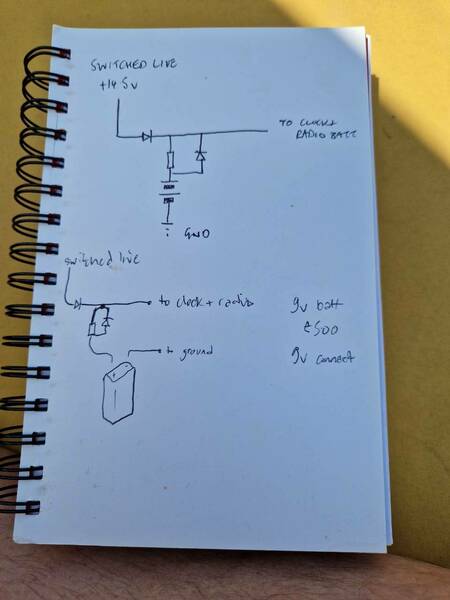 SWITCHED LIVE
+14 5V
TO CLOCK+
RADIO BATT
GND
switched live
to clock + radio
9v batt
to ground
9v connect